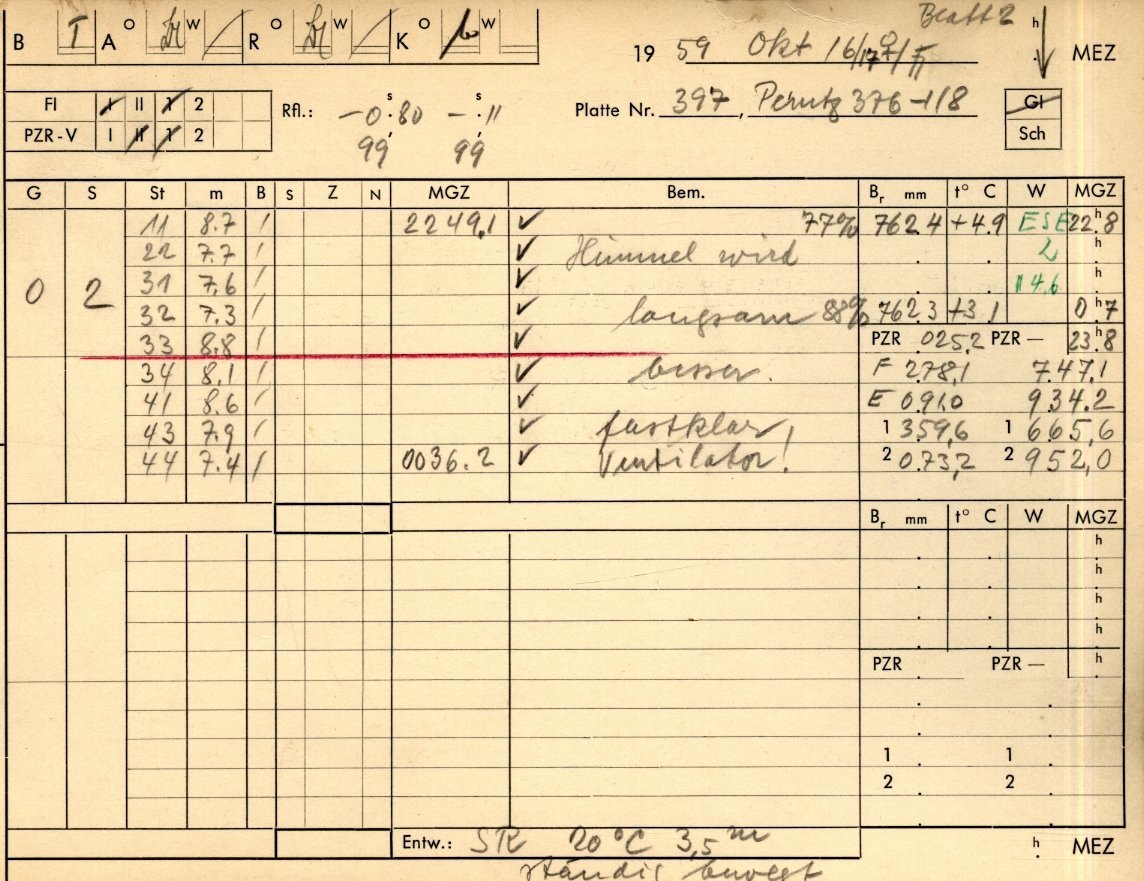 Blatt 2
B T A O W R O W K O W 19 59 Okt 16/17 h MEZ
FI I II 1 2 Rfl.: -0.80 s - .11 s Platte Nr. 397, Perutz 376-118 Gl
PZR-V I II 1 2 99, 99, Sch
G S St m B S Z N MGZ Bem. Br mm t° C W MGZ
11 8.7 / 2249,1 ✓ 77% 762.4 +4.9 ESE 22h.8
22 7.7 / ✓ Himmel wird 2 h
0 2 31 7.6 / ✓ 4.6 h
32 7.3 / ✓ langsam 88% 762.3 +3.1 0h7
33 8.8 / ✓ PZR 025.2 PZR — 23h.8
34 8.1 / ✓ besser. F 278,1 747.1
41 8.6 / ✓ E 091.0 934.2
43 7.9 / ✓ fast klar, 1 359,6 1 665,6
44 7.4 / 0036.2 ✓ Ventilator! 2 073,2 2 952,0
Br mm t° C W MGZ
h
h
h
h
PZR PZR — h
1 1
2 2
Entw.: SR 20°C 3,5 m h MEZ
ständig bewegt